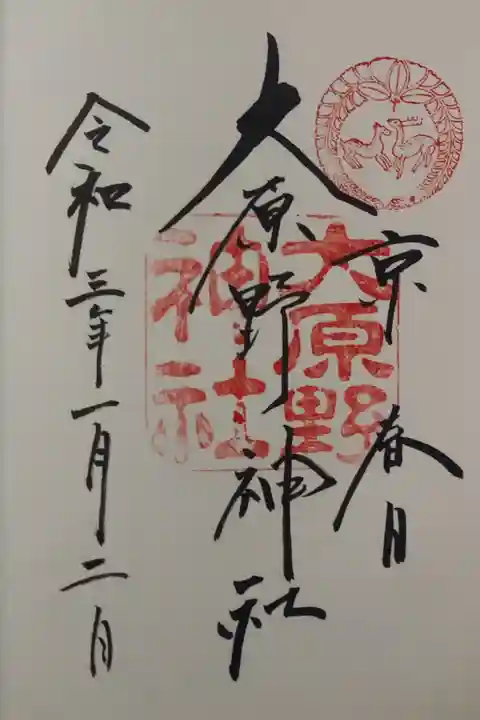 京 春日
大原野神社
大原野
神社
令和三年一月二日